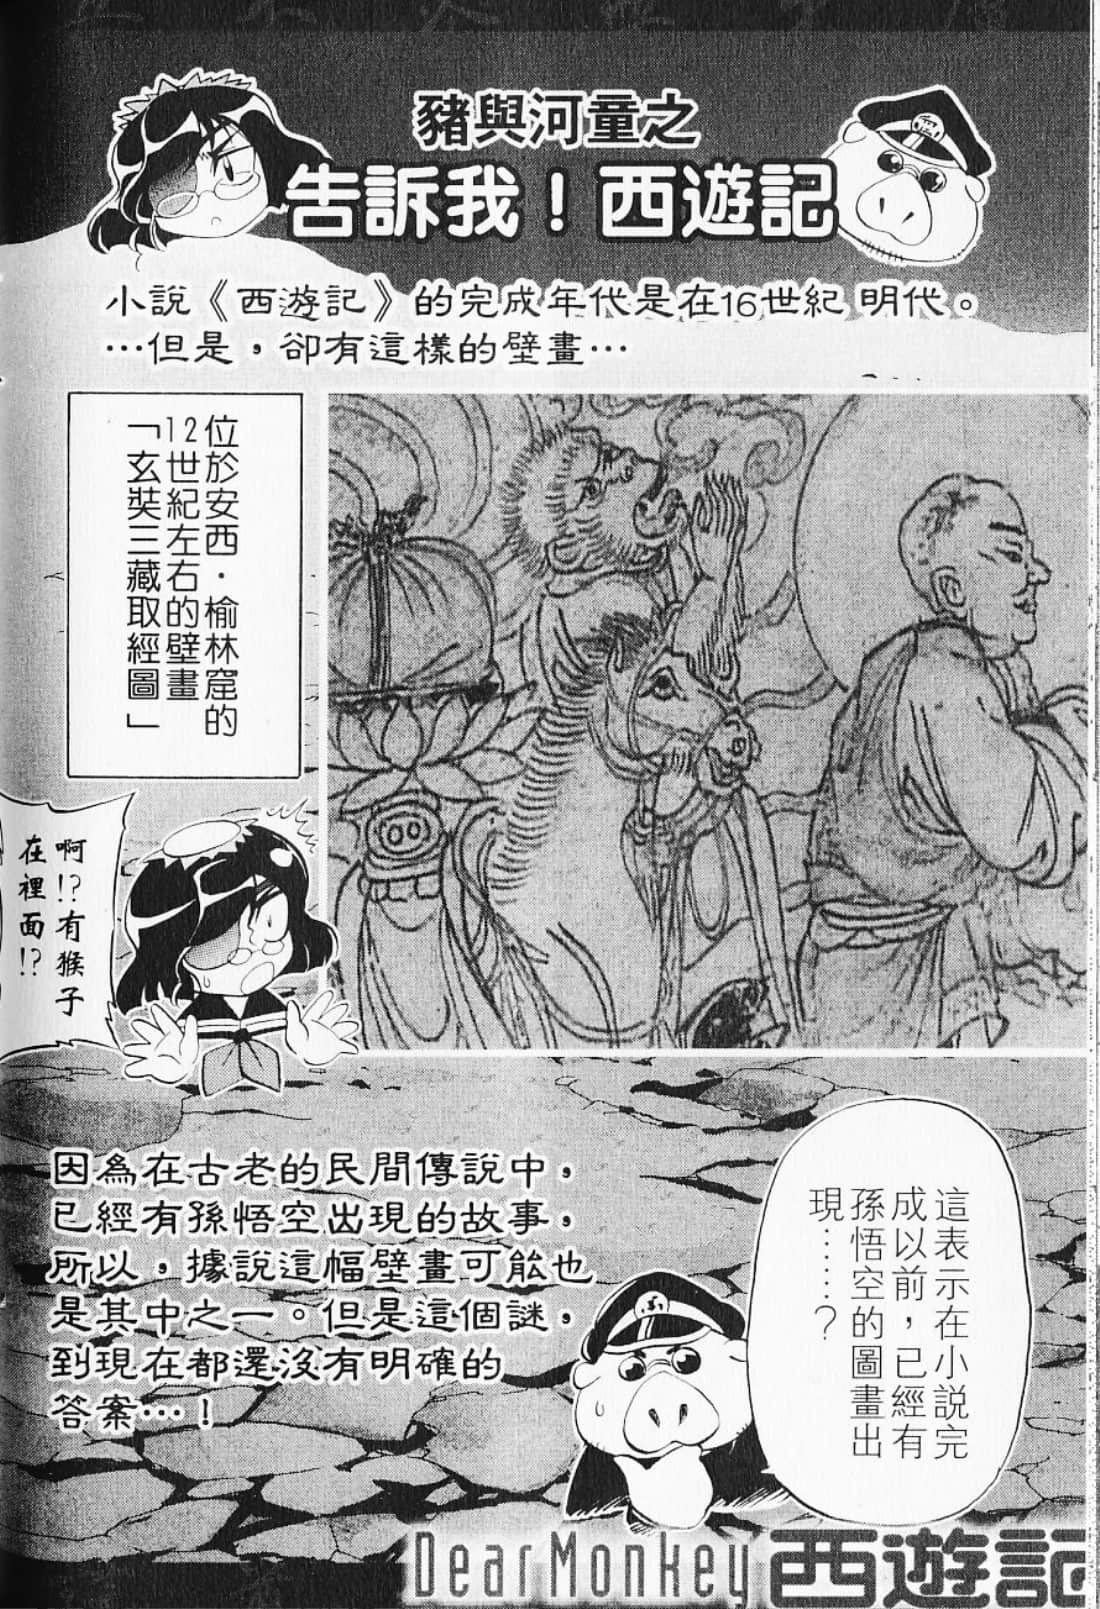 豬與河童之
告訴我！西遊記
小說《西遊記》的完成年代是在16世紀 明代。
…但是，卻有這樣的壁畫…
位於安西．榆林窟的
12世紀左右的壁畫
「玄奘三藏取經圖」
啊!?有猴子
在裡面!?
這表示在小說完
成以前，已經有
孫悟空的圖畫出
現……？
因為在古老的民間傳說中，
已經有孫悟空出現的故事，
所以，據說這幅壁畫可能也
是其中之一。但是這個謎，
到現在都還沒有明確的
答案…！
Dear Monkey 西遊記